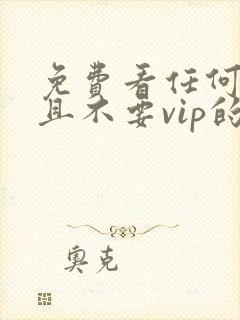 免費看任何
且不要vip的
奧克